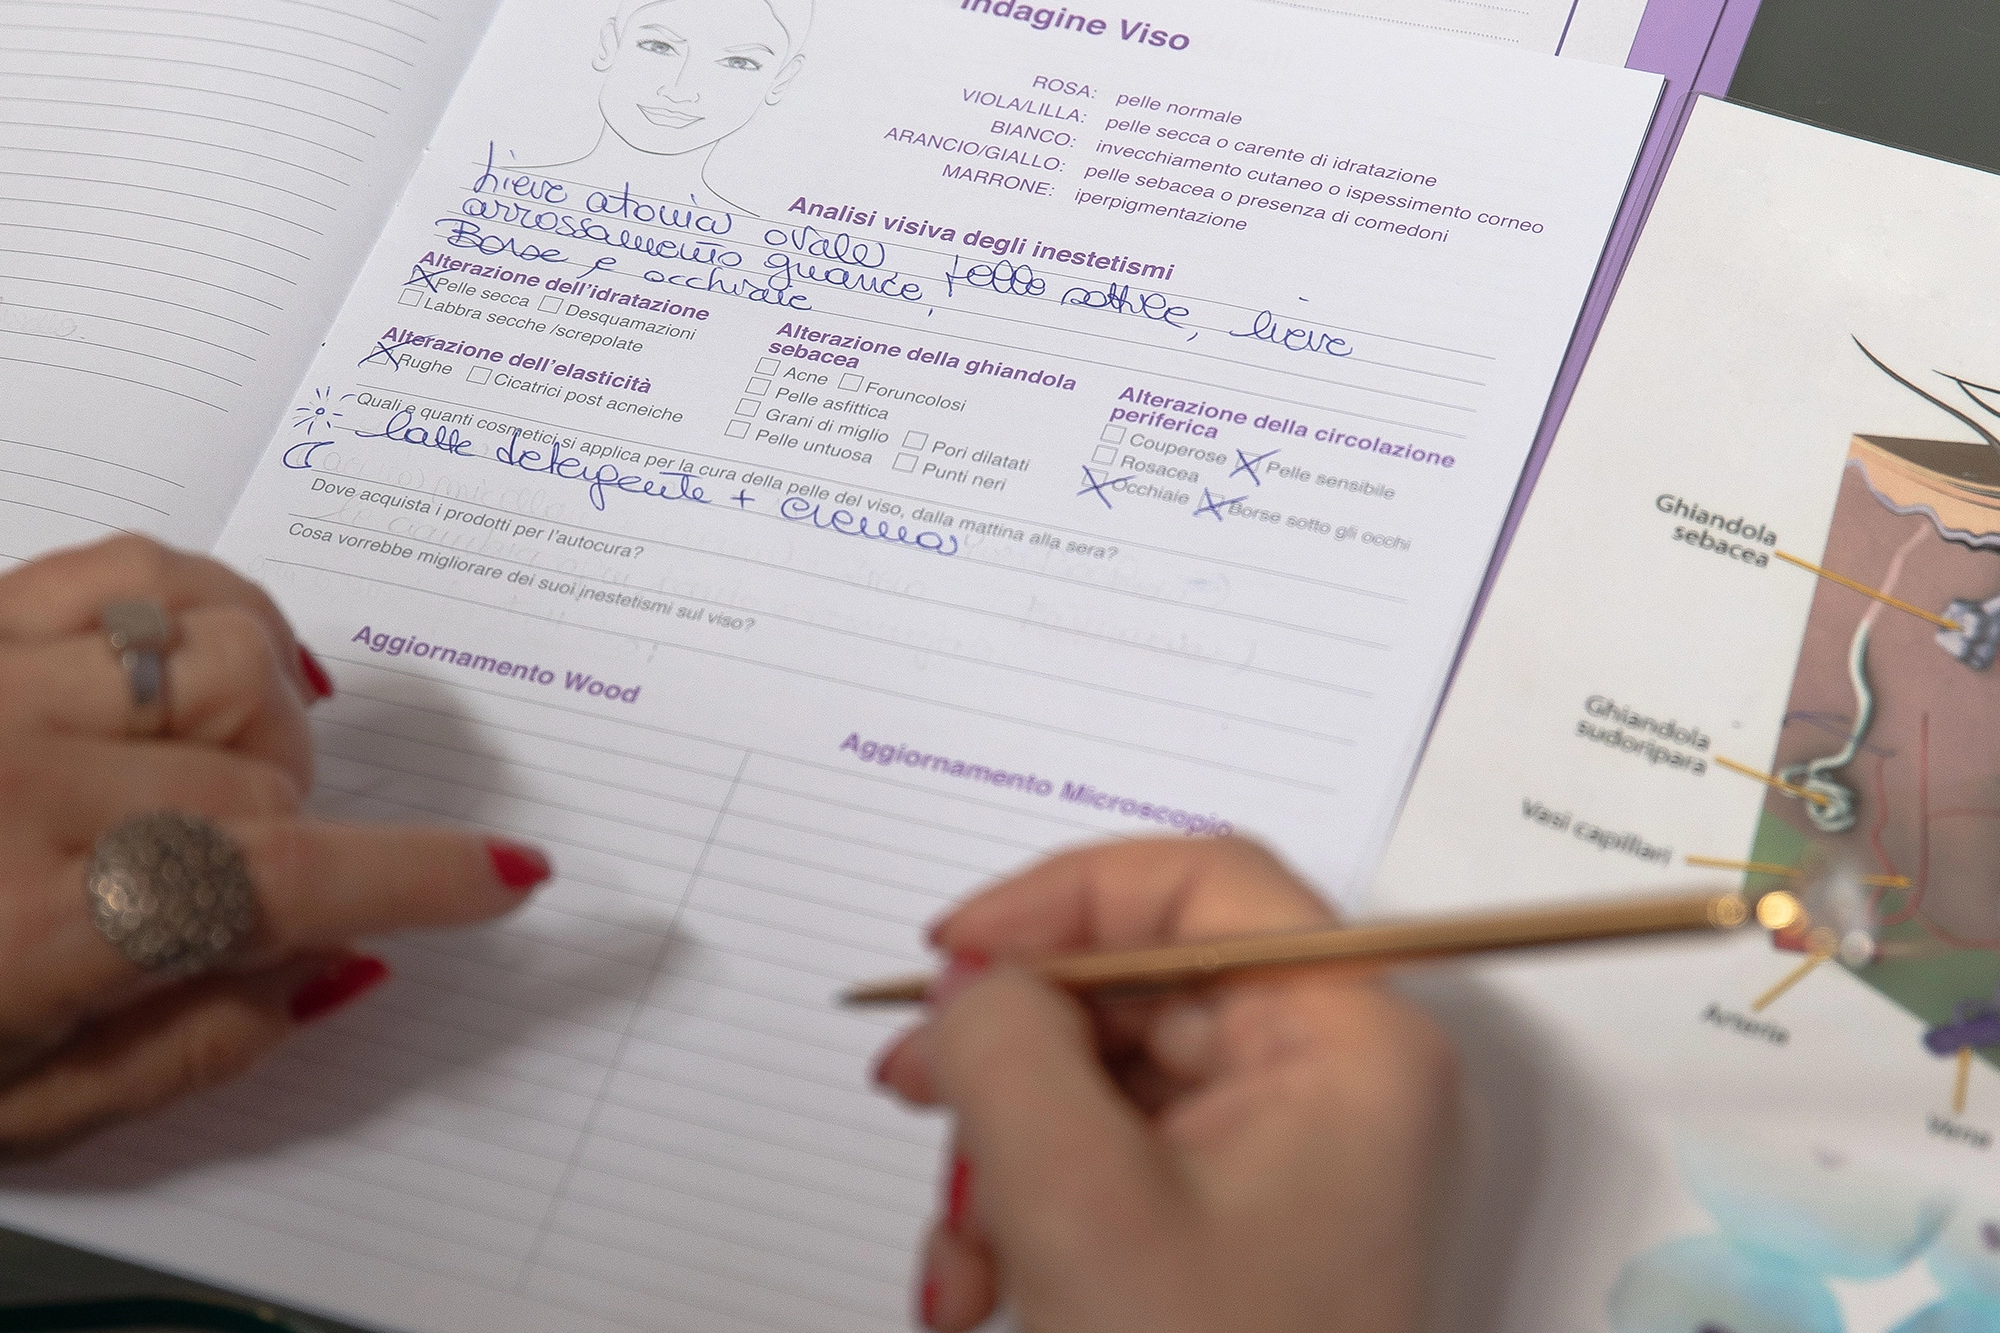 Indagine Viso
ROSA: pelle normale
VIOLA/LILLA: pelle secca o carente di idratazione
BIANCO: invecchiamento cutaneo o ispessimento corneo
ARANCIO/GIALLO: pelle sebacea o presenza di comedoni
MARRONE: iperpigmentazione
Analisi visiva degli inestetismi
Lieve atonia ovale, pelle sottile, lieve
arrossamento guance,
Borse e occhiaie
Alterazione dell'idratazione
Pelle secca Desquamazioni
Labbra secche /screpolate
Alterazione dell'elasticità
Rughe Cicatrici post acneiche
Alterazione della ghiandola
sebacea
Acne Foruncolosi
Pelle asfittica
Grani di miglio Pori dilatati
Pelle untuosa Punti neri
Alterazione della circolazione
periferica
Couperose Pelle sensibile
Rosacea
Occhiaie Borse sotto gli occhi
Quali e quanti cosmetici si applica per la cura della pelle del viso, dalla mattina alla sera?
latte detergente + crema
Dove acquista i prodotti per l'autocura?
Cosa vorrebbe migliorare dei suoi inestetismi sul viso?
Aggiornamento Wood
Aggiornamento Microscopio
Ghiandola
sebacea
Ghiandola
sudoripara
Vasi capillari
Arteria
Vena